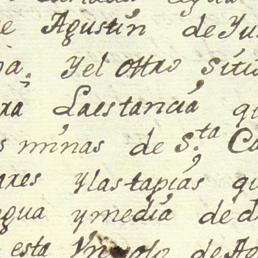 e Agustin de Yu
a; Yel ottro siti
ra Laestancia q
s minas de S.ta Ca
ares Ylastapias qu
egua y media de d
esta